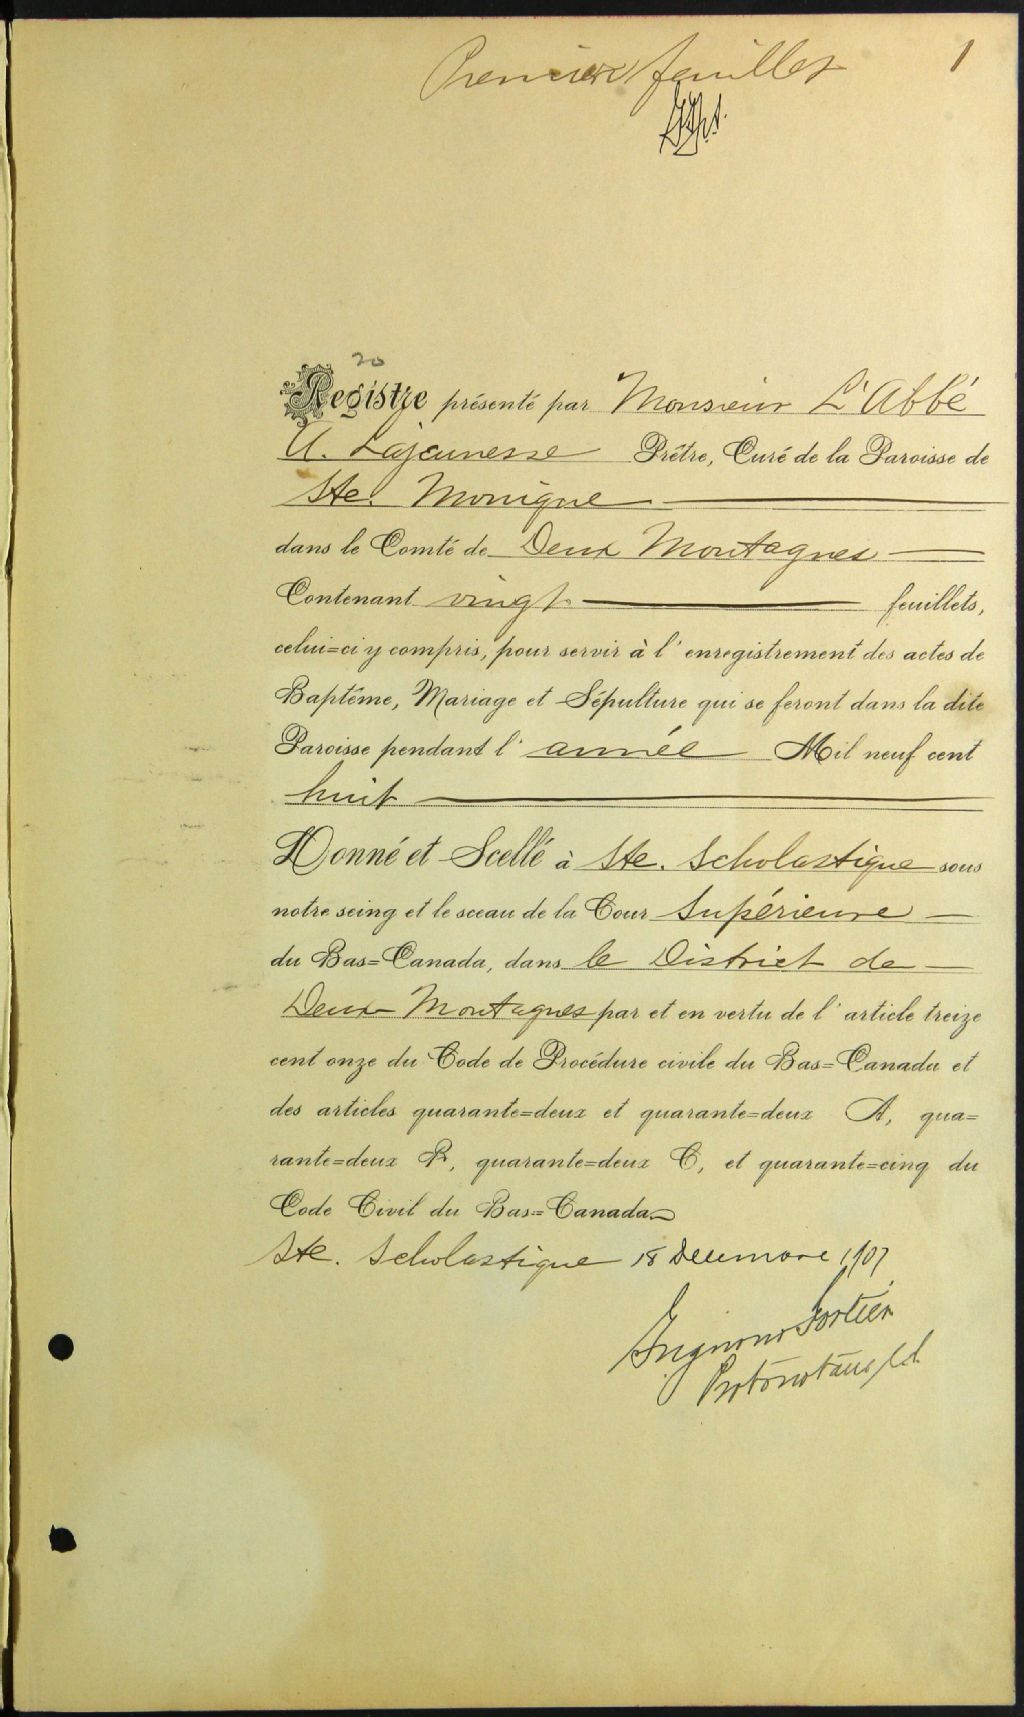 Premier feuillet
1
20
Registre présenté par Monsieur L'Abbé
A. Lajeunesse Prêtre, Curé de la Paroisse de
Ste. Monique
dans le Comté de Deux Montagnes
Contenant vingt feuillets,
celui=ci y compris, pour servir à l'enregistrement des actes de
Baptême, Mariage et Sépulture qui se feront dans la dite
Paroisse pendant l'année Mil neuf cent
huit
Donné et Scellé à Ste. Scholastique sous
notre seing et le sceau de la Cour Supérieure
du Bas=Canada, dans le District de
Deux Montagnes par et en vertu de l'article treize
cent onze du Code de Procédure civile du Bas=Canada et
des articles quarante=deux et quarante=deux A, qua=
rante=deux B, quarante=deux C, et quarante=cinq du
Code Civil du Bas=Canada
Ste. Scholastique 18 Decembre 1907
Fortier
Protonotaire